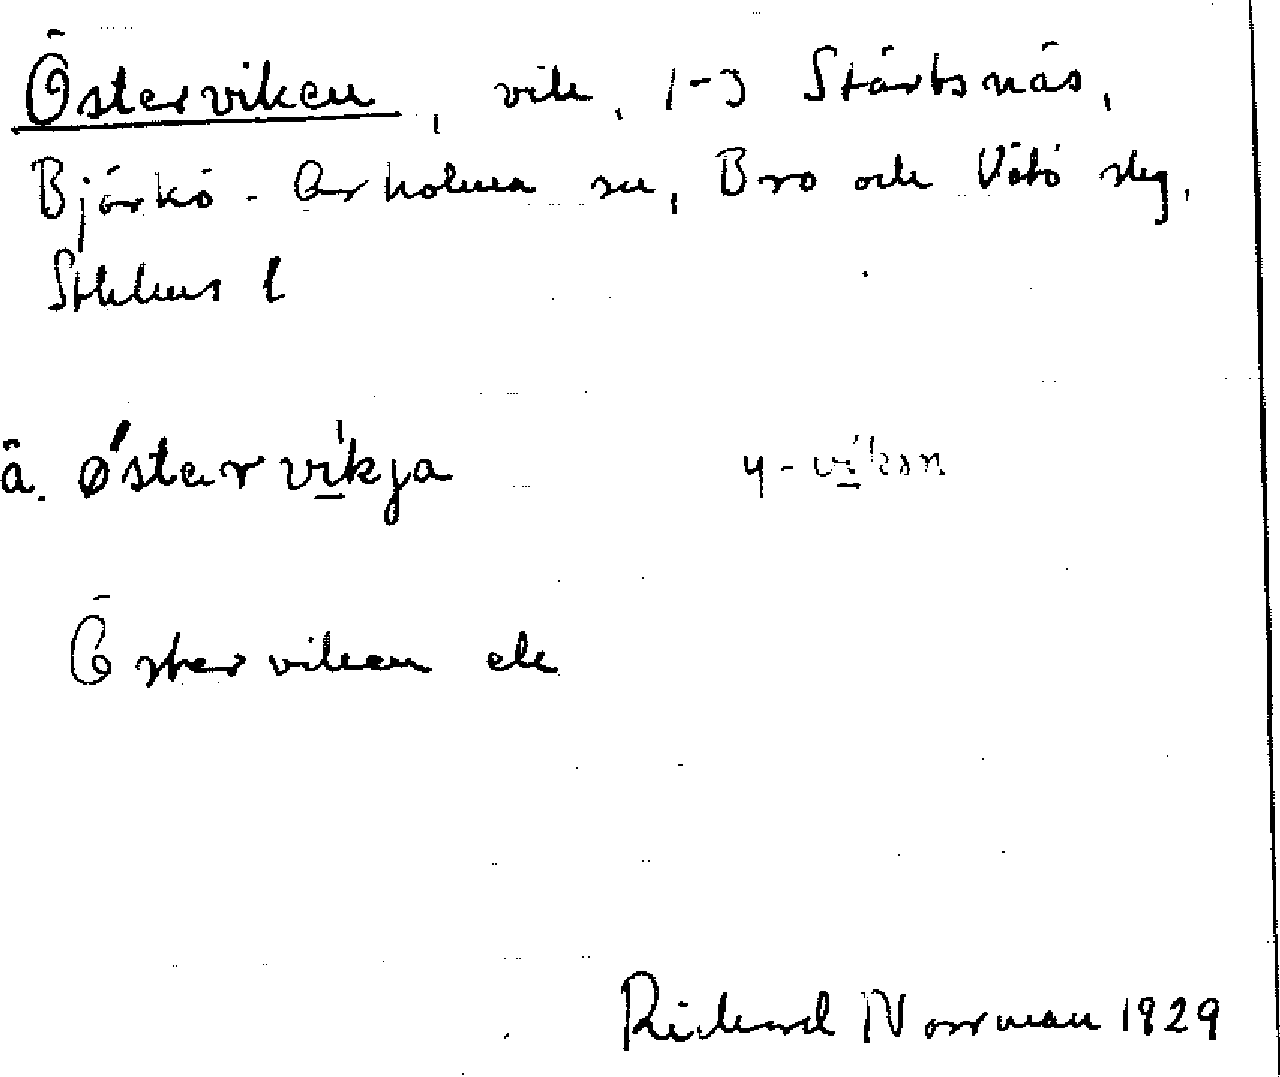 Österviken, vik, 1-3 Stärbsnäs,
Björkö-Arholma sn, Bro och Vätö slg,
Sthlms l
ä. ǿstarvìkja y-vìkən
Österviken ek
Rickard Norrman 1929